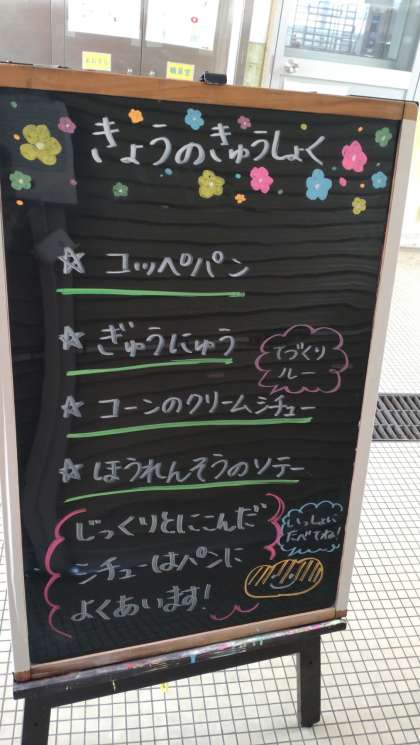 きょうのきゅうしょく
☆ コッペパン
☆ ぎゅうにゅう
てづくり
ルー
☆ コーンのクリームシチュー
☆ ほうれんそうのソテー
じっくりとにこんだ
シチューはパンに
よくあいます!
いっしょに
たべてね!